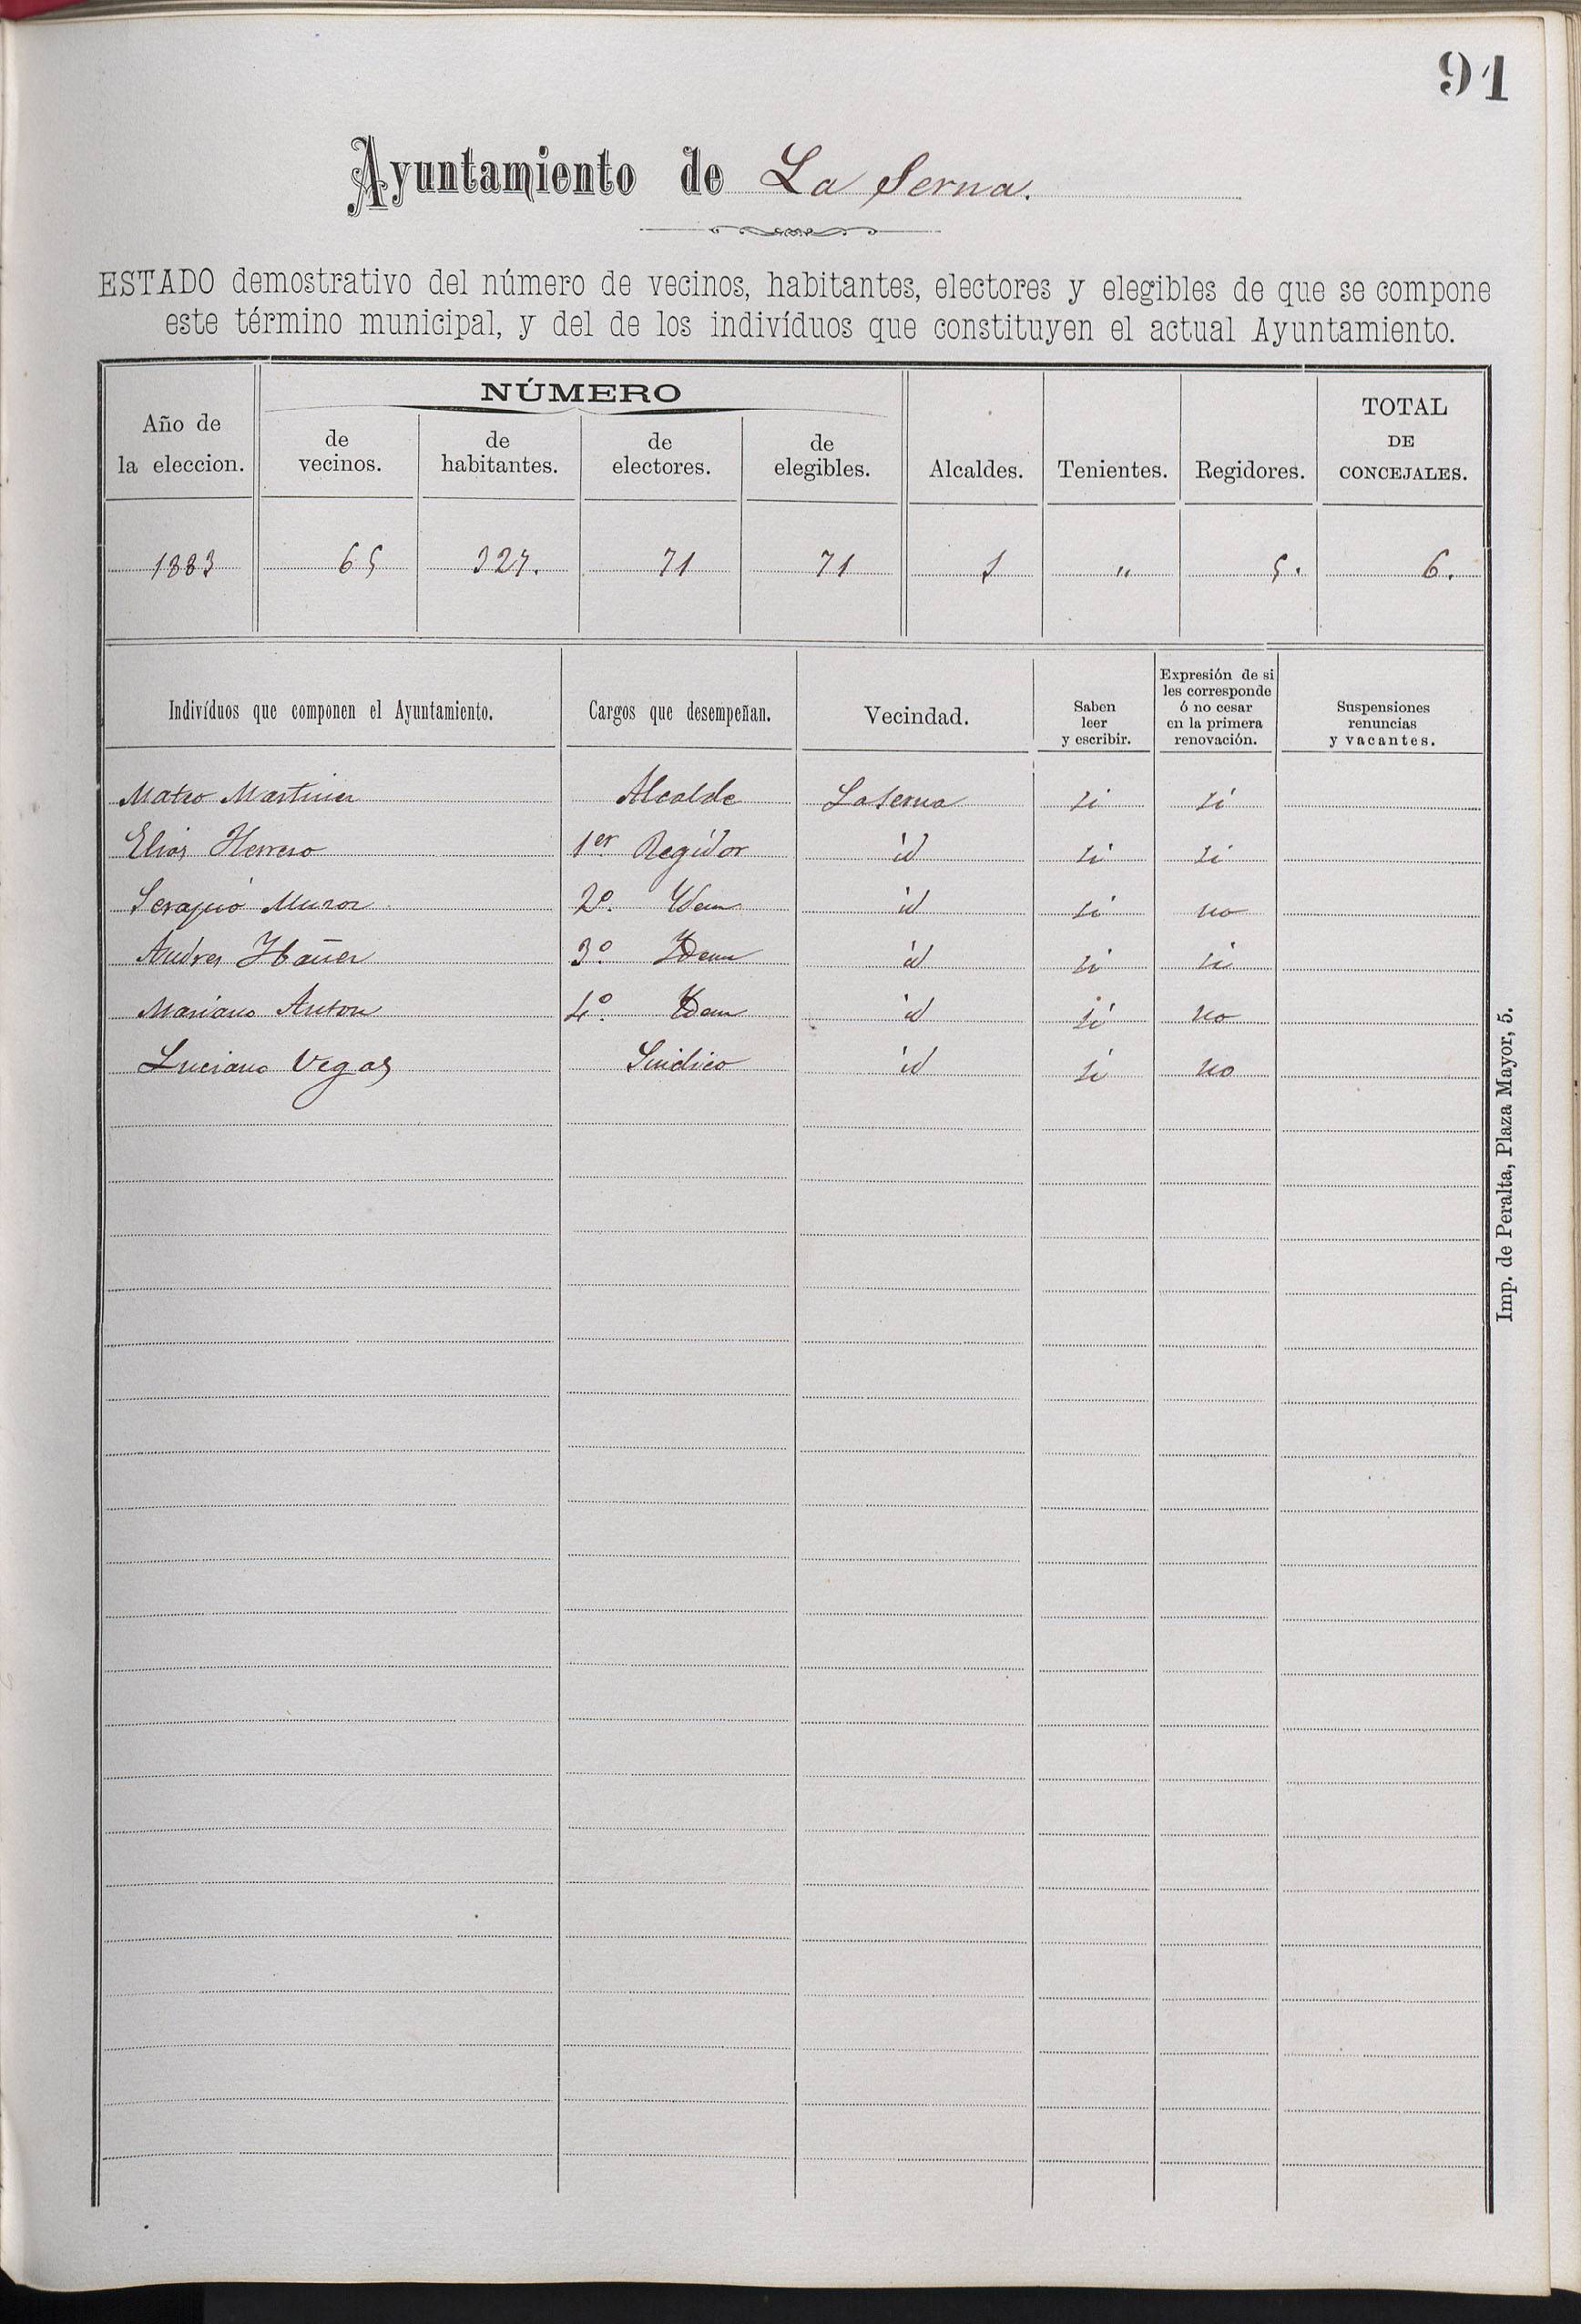 91
Ayuntamiento de La Serna.
ESTADO demostrativo del número de vecinos, habitantes, electores y elegibles de que se compone
este término municipal, y del de los indivíduos que constituyen el actual Ayuntamiento.
Año de la eleccion. NÚMERO de vecinos. de habitantes. de electores. de elegibles. Alcaldes. Tenientes. Regidores. TOTAL DE CONCEJALES.
1883 65 327. 71 71 1 " 5. 6.
Indivíduos que componen el Ayuntamiento. Cargos que desempeñan. Vecindad. Saben leer y escribir. Expresión de si les corresponde ó no cesar en la primera renovación. Suspensiones renuncias y vacantes.
Mateo Martinez Alcalde La Serna si si
Elias Herrero 1er Regidor id si si
Serapio Munoz 2o. Ydem id si no
Andres Ybañez 3o. Ydem id si si
Mariano Anton 4o. Ydem id si no
Luciano Vegas Sindico id si no
Imp. de Peralta, Plaza Mayor, 5.